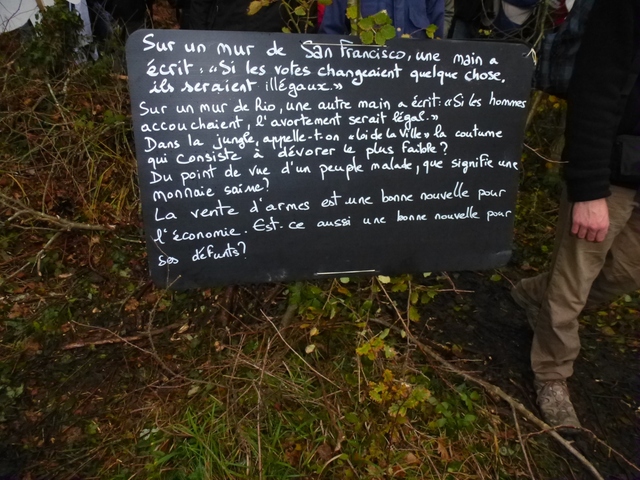 Sur un mur de San Francisco, une main a
écrit : « Si les votes changeaient quelque chose,
ils seraient illégaux. »
Sur un mur de Rio, une autre main a écrit : « Si les hommes
accouchaient, l'avortement serait légal. »
Dans la jungle, appelle-t-on « loi de la ville » la coutume
qui consiste à dévorer le plus faible ?
Du point de vue d'un peuple malade, que signifie une
monnaie saine ?
La vente d'armes est une bonne nouvelle pour
l'économie. Est-ce aussi une bonne nouvelle pour
ses défunts ?